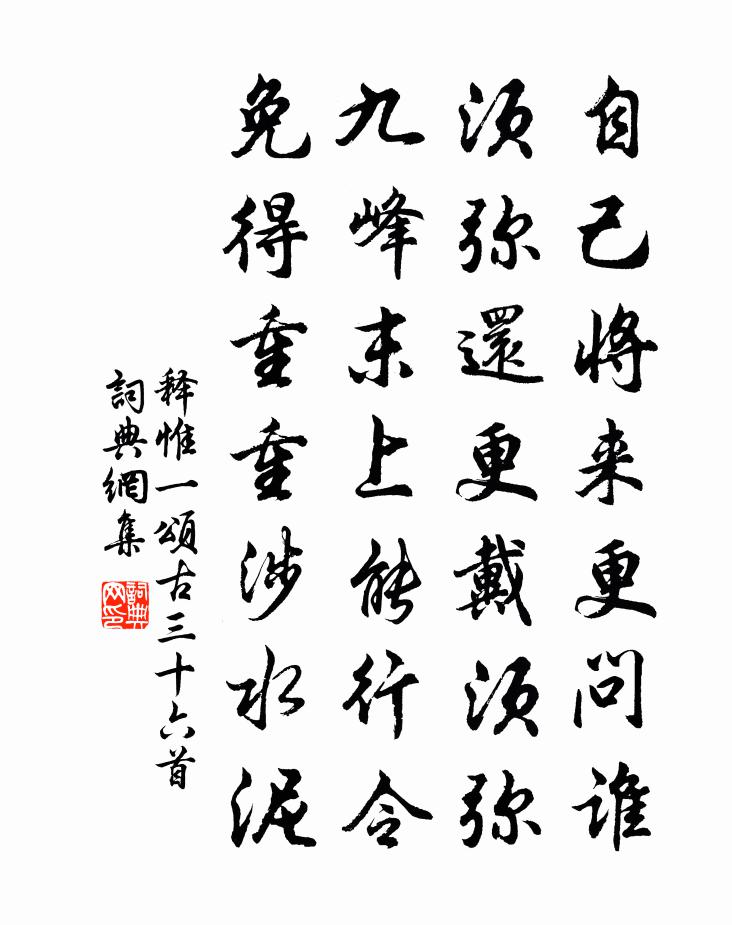 自己将来更问谁
须弥還更戴须弥
九峰末上能行令
免得重重涉水泥
释惟一頌古三十六首
詞典網集
詞典网印